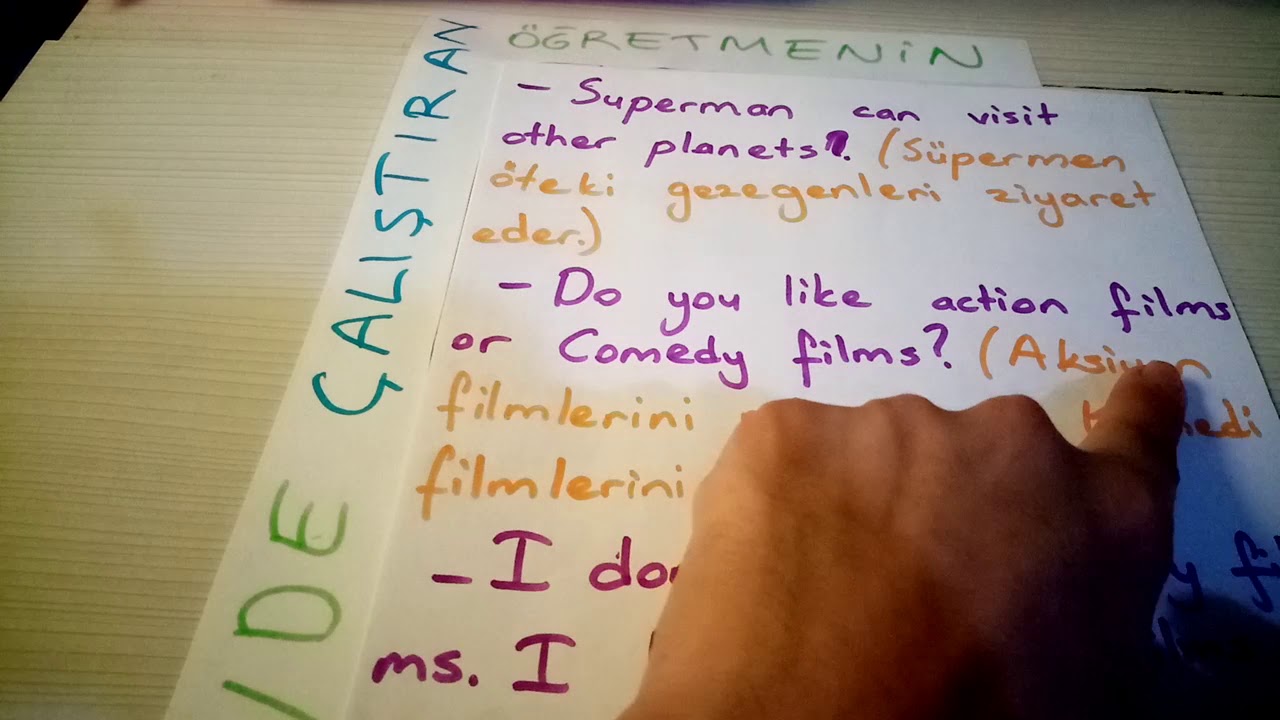 ÖĞRETMENİN
ÇALIŞTIRAN
İDE
- Superman can visit
other planets?. (Süpermen
öteki gezegenleri ziyaret
eder.)
- Do you like action films
or Comedy films? (Aksiyon
filmlerini
filmlerini
- I
ms. I